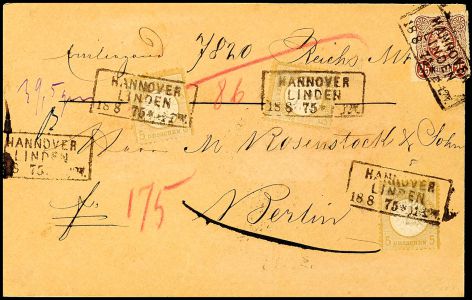 7820 Reichs
HANNOVER
LINDEN
18 8 75*
HANNOVER
LINDEN
18 8 75*
86
HANNOVER
LINDEN
18 8 75*
5 GROSCHEN 5
HANNOVER
LINDEN
18 8 75
Herrn M Rosenstock & Sohn
175
Berlin
HANNOVER
LINDEN
18 8 75*
5 GROSCHEN 5